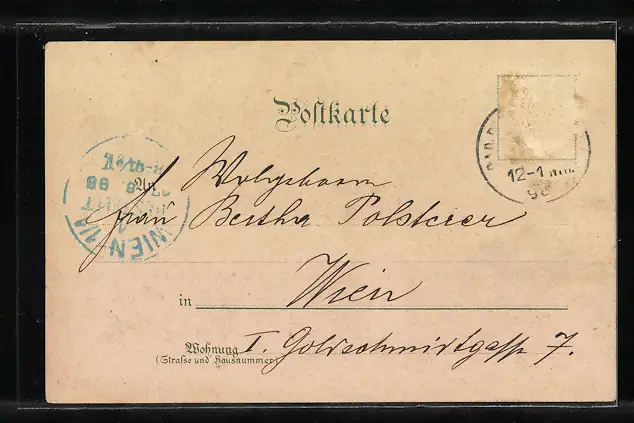 Postkarte
12-1 Nm.
98
WIEN 1/1
98
An Wohlgeboren
Frau Bertha Polsterer
in Wien
Wohnung I. Goldschmidtgasse 7.
(Strasse und Hausnummer)